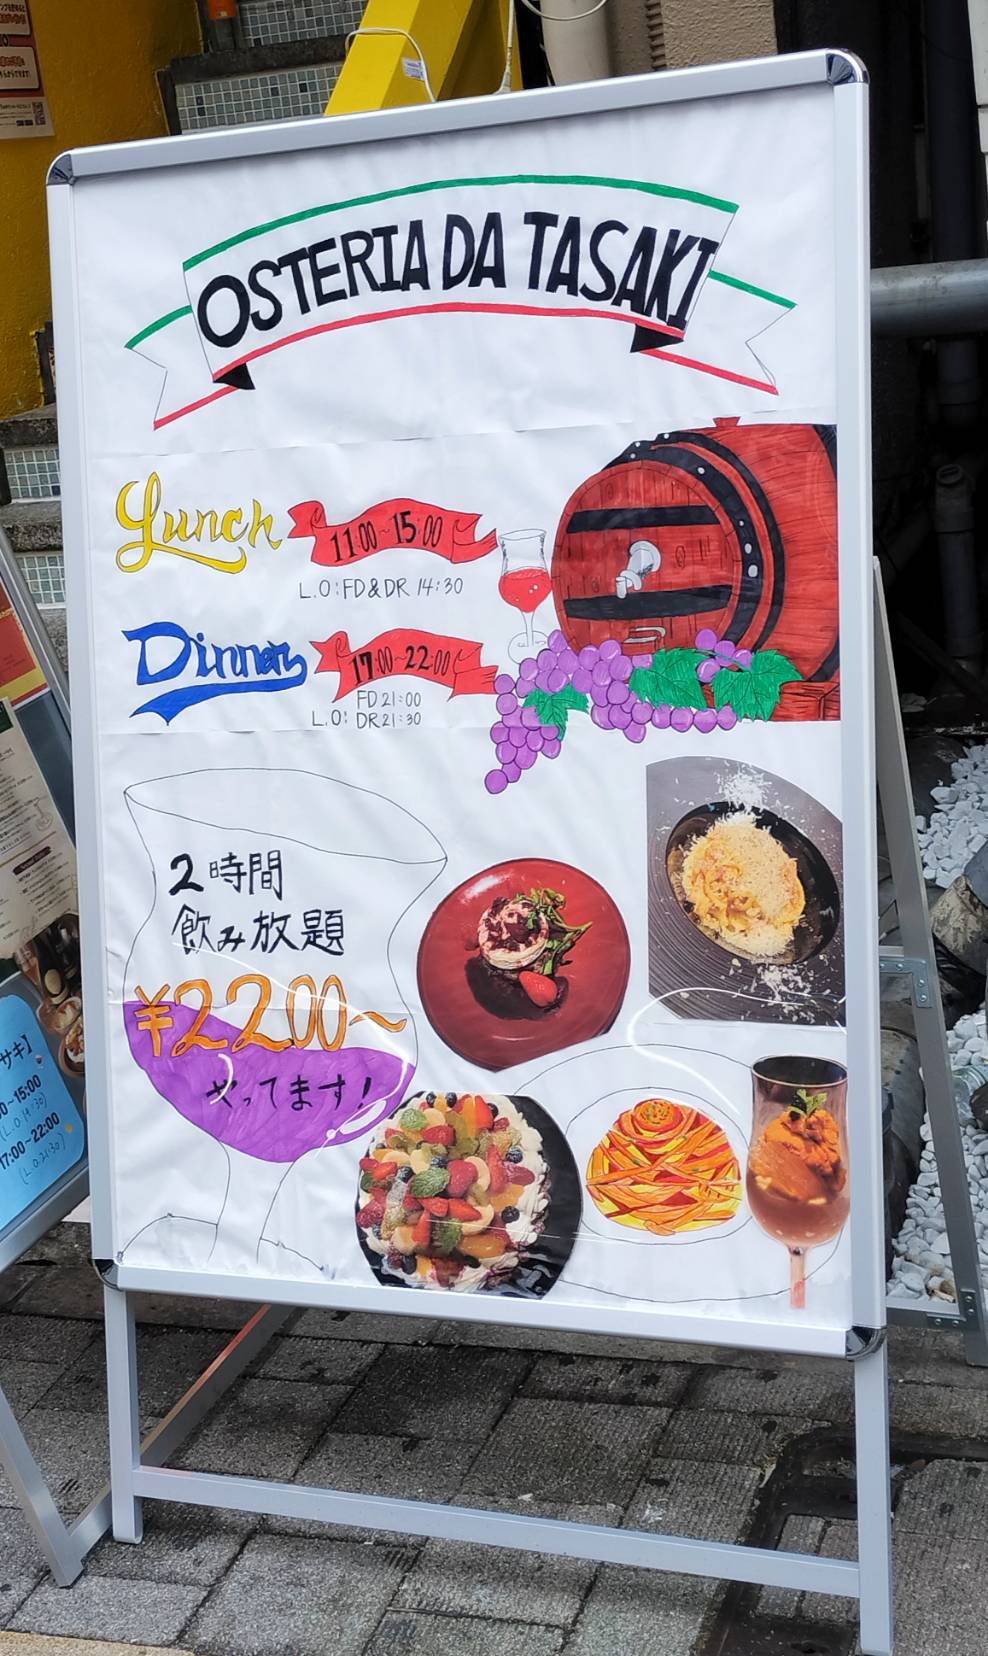 OSTERIA DA TASAKI
Lunch 11:00~15:00
L.O:FD&DR 14:30
Dinner 17:00~22:00
FD 21:00
L.O: DR 21:30
2時間
飲み放題
¥2200~
やってます!
サキ】
0~15:00
(L.O.14:30)
17:00~22:00
(L.O.21:30)